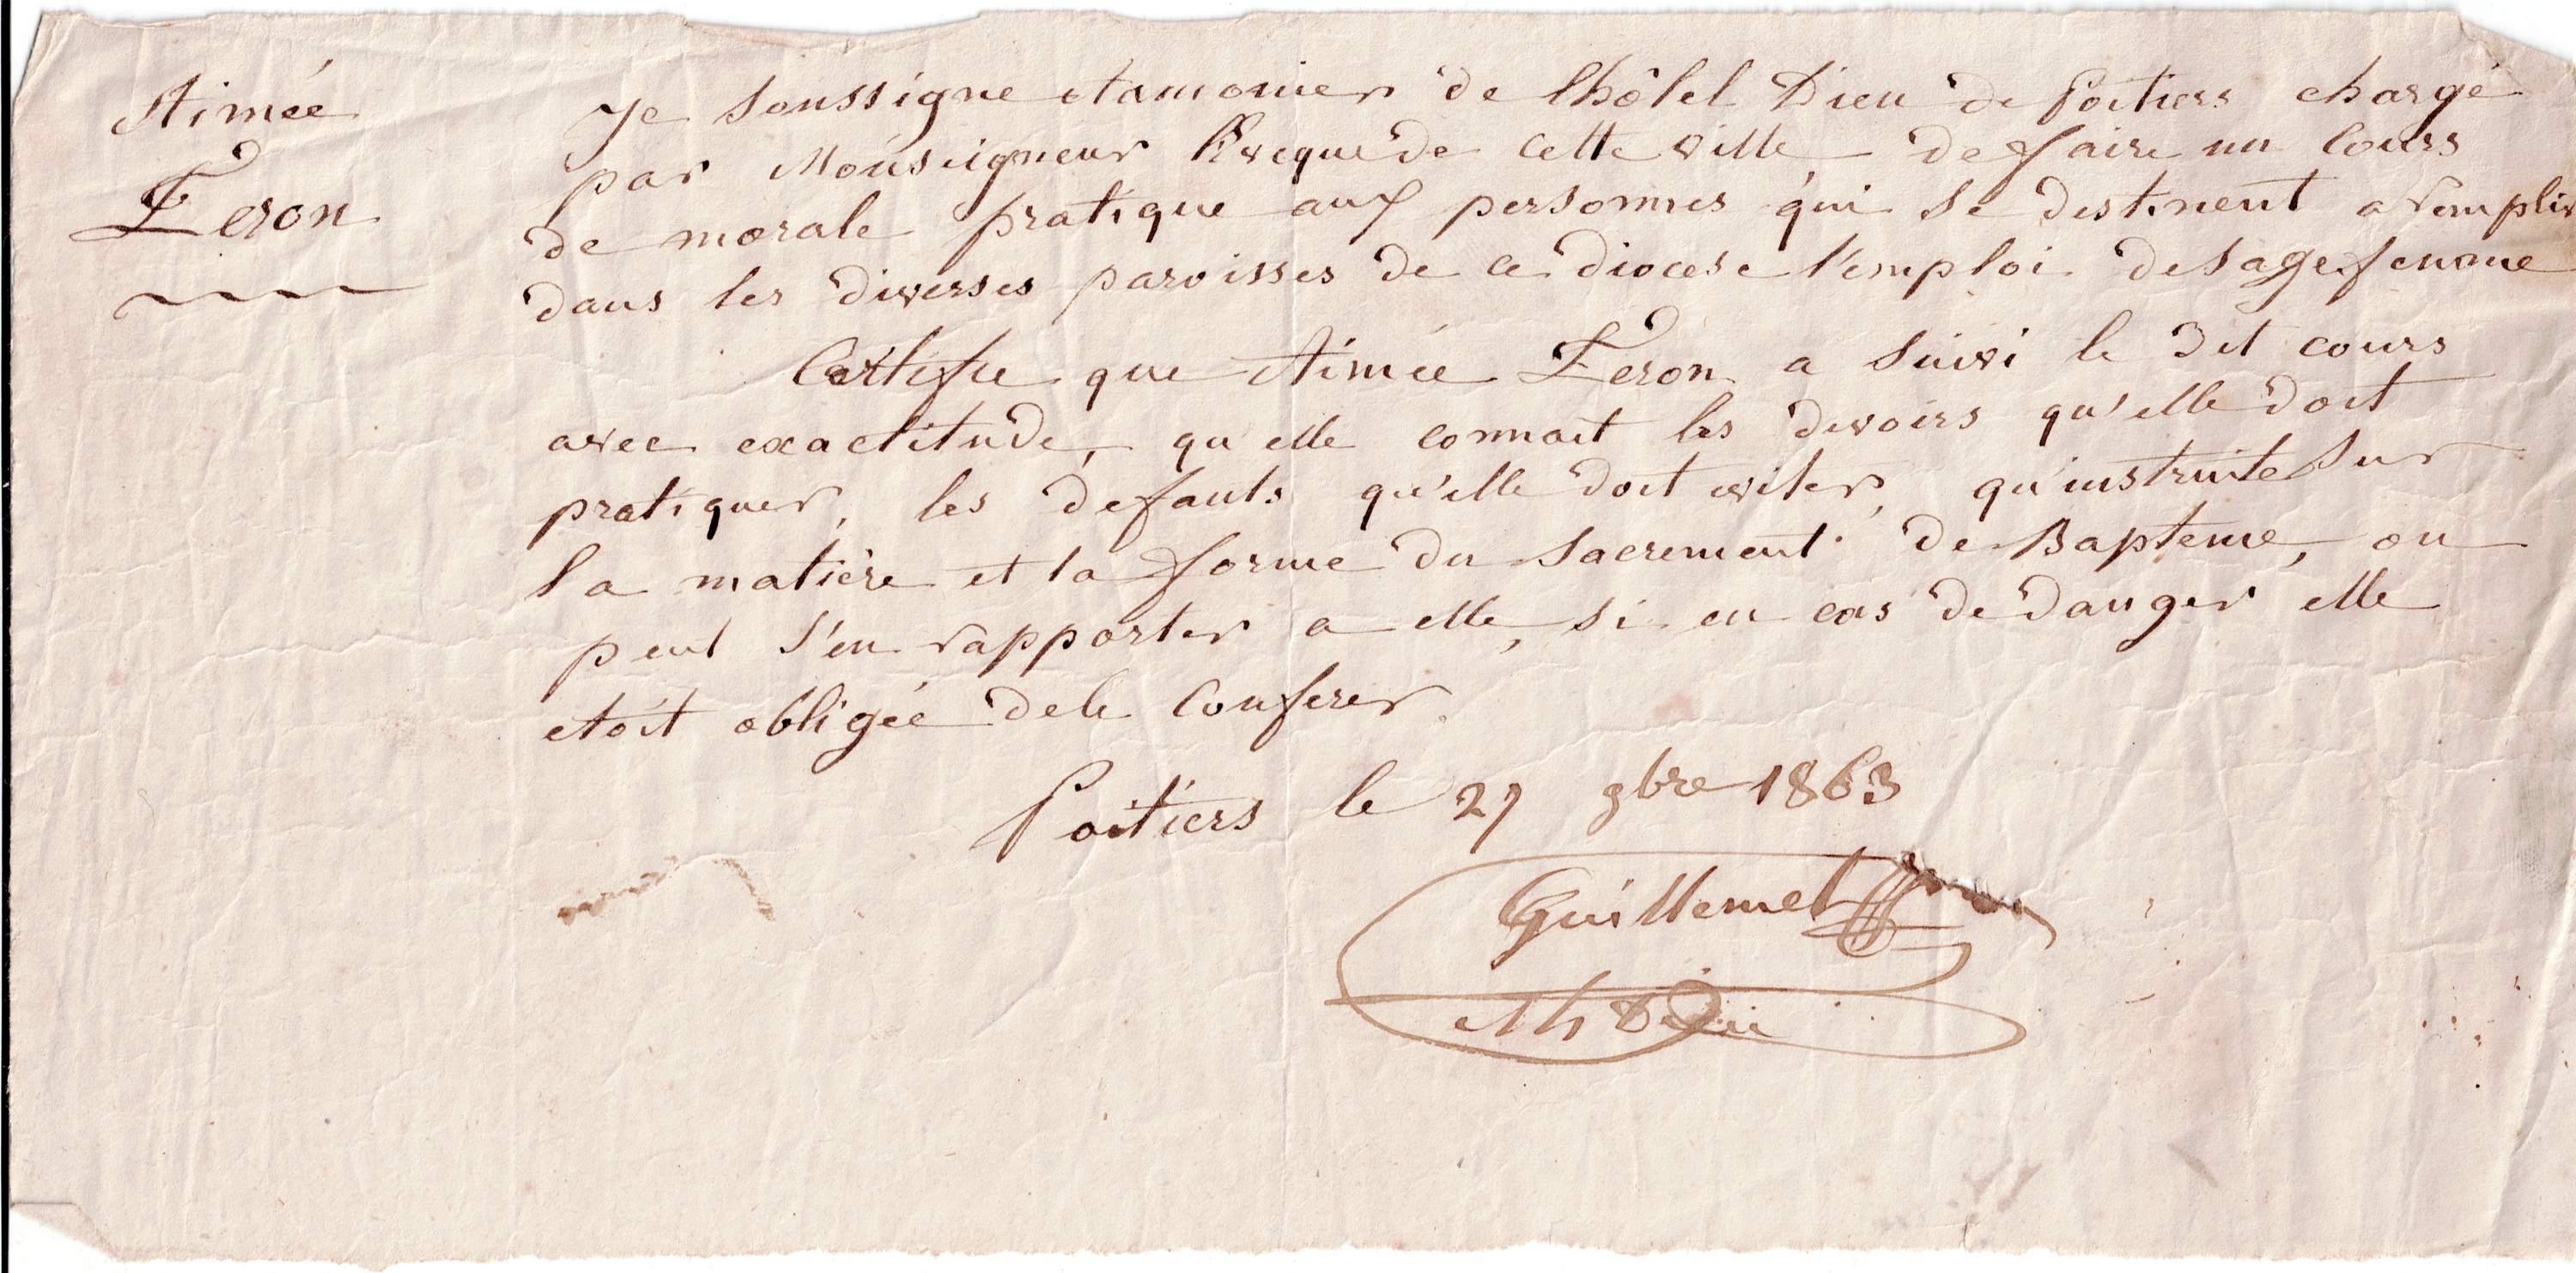 Aimée
Feron
Je soussigne Aumonier de lhôtel Dieu de Poitiers chargé
par Monseigneur Eveque de cette ville de faire un Cours
de morale pratique aux personnes qui se destinent a remplir
dans les diverses paroisses de ce diocese l'emploi de sage femme
Certifie que Aimée Feron a suivi le dit cours
avec exactitude, qu'elle connait les devoirs qu'elle doit
pratiquer, les defauts qu'elle doit eviter, qu'instruite sur
la matière et la forme du Sacrement de Bapteme, on
peut s'en rapporter a elle, si en cas de danger elle
etoit obligée de le Conferer.
Poitiers le 27 9bre 1863
Guillemet